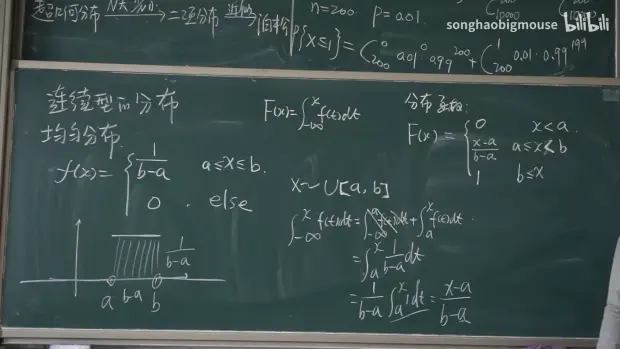 超几何分布 N大,n小 二项分布 近似 泊松
n=200 p=0.01.
P{X≤1} = C₂₀₀⁰ 0.01⁰ 0.99²⁰⁰ + C₂₀₀¹ 0.01·0.99¹⁹⁹
songhaobigmouse bilibili
连续型的分布
均匀分布.
f(x)= { 1/(b-a) a≤x≤b.
0. else
F(x)=∫_{-∞}^{x} f(t)dt
X~U[a,b]
∫_{-∞}^{x} f(t)dt = ∫_{-∞}^{a} f(t)dt + ∫_{a}^{x} f(t)dt.
= ∫_{a}^{x} 1/(b-a) dt
= 1/(b-a) ∫_{a}^{x} 1dt = (x-a)/(b-a)
分布函数:
F(x)= { 0 x<a.
(x-a)/(b-a) a≤x<b
1 b≤x
1/(b-a)
a b-a b